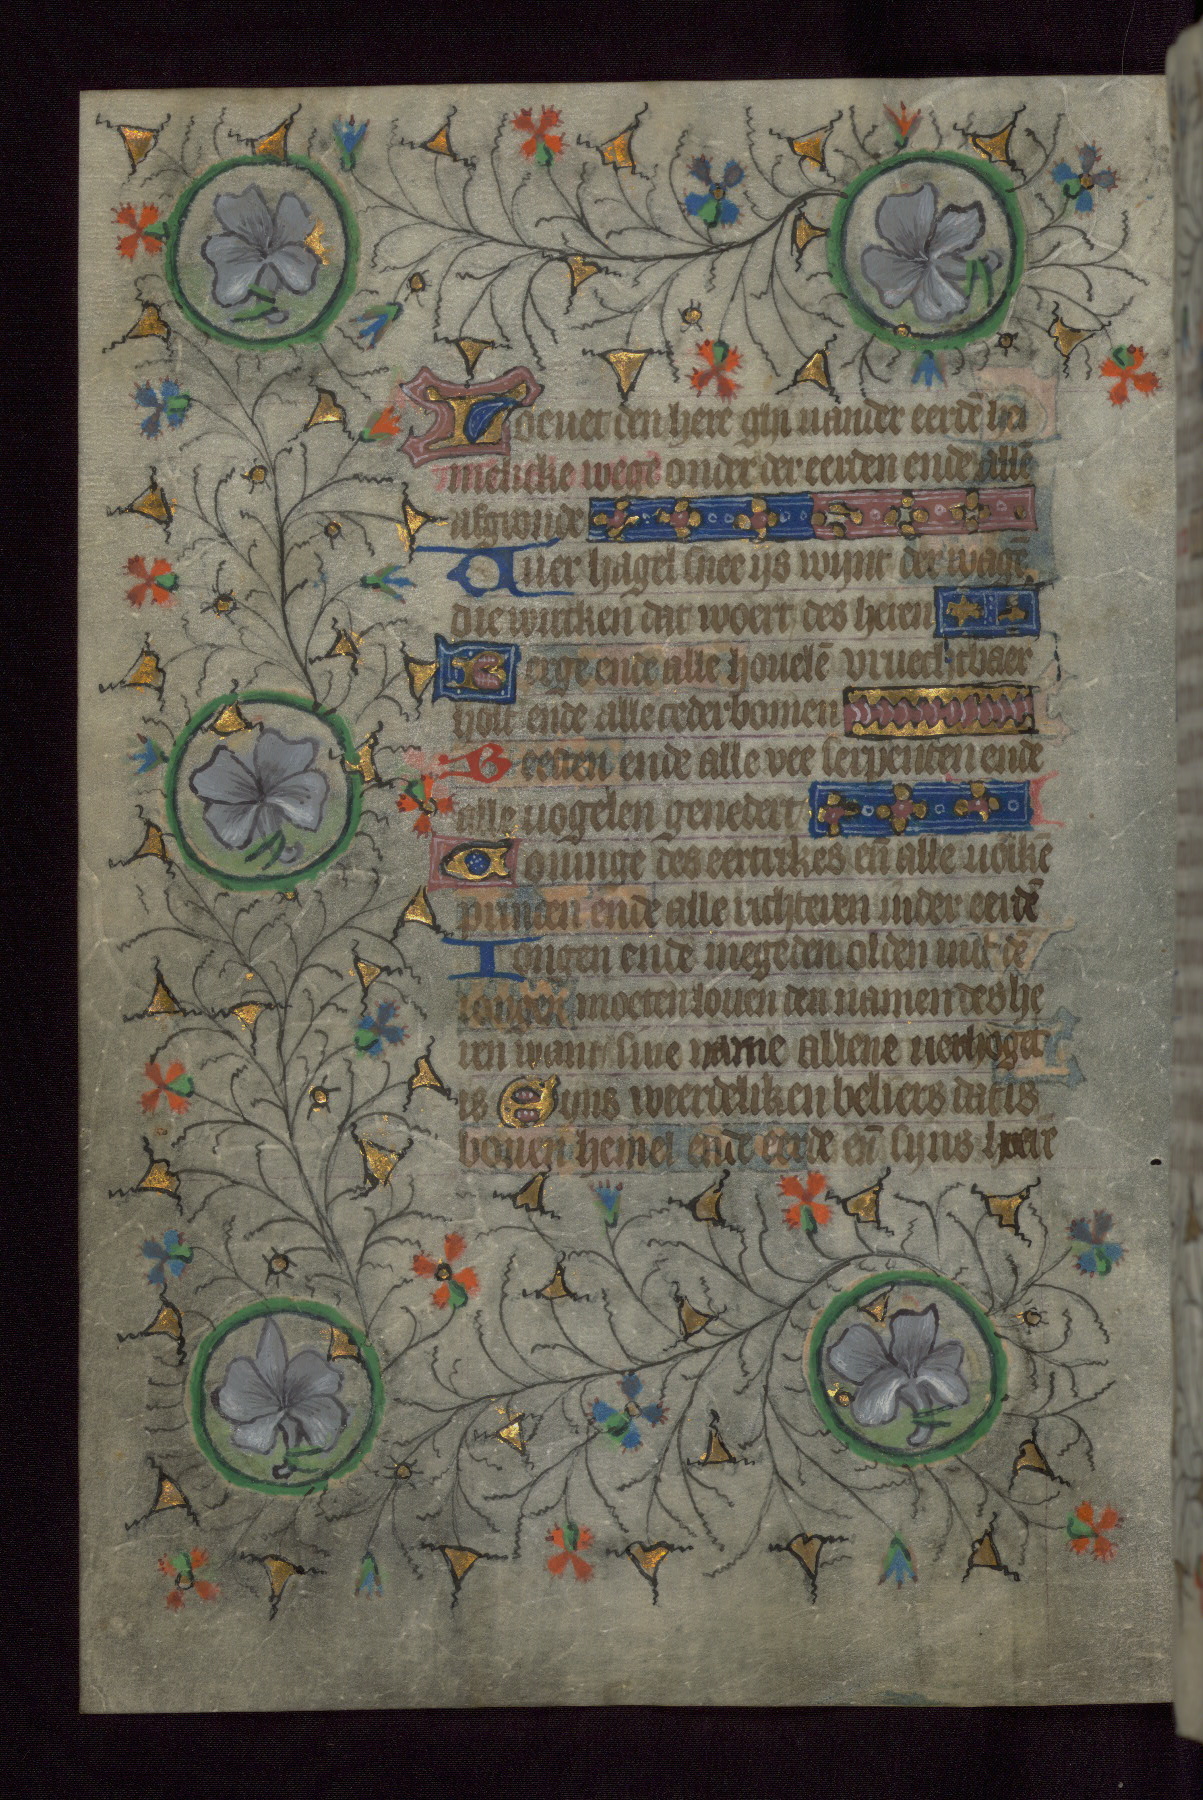 Loeuet den here ghi uander eerdē hei
melicke wege onder der eerden ende alle
afgronde
Uuer hagel snee ijs wynt der wagē
die wircken dat woert des heren
Berge ende alle houelē vruechtbaer
holt ende alle cederbomen
Beesten ende alle vee serpenten ende
alle uogelen gevedert
Coninge des eertrikes en̄ alle uolke
princen ende alle richteren inder eerdē
Iongen ende megeden olden mit dē
iongen moeten louen den namen des he
ren want sine name allene verhoget
is Syns weerdeliken beliers dat is
bouen hemel ende eerde en̄ syns heere